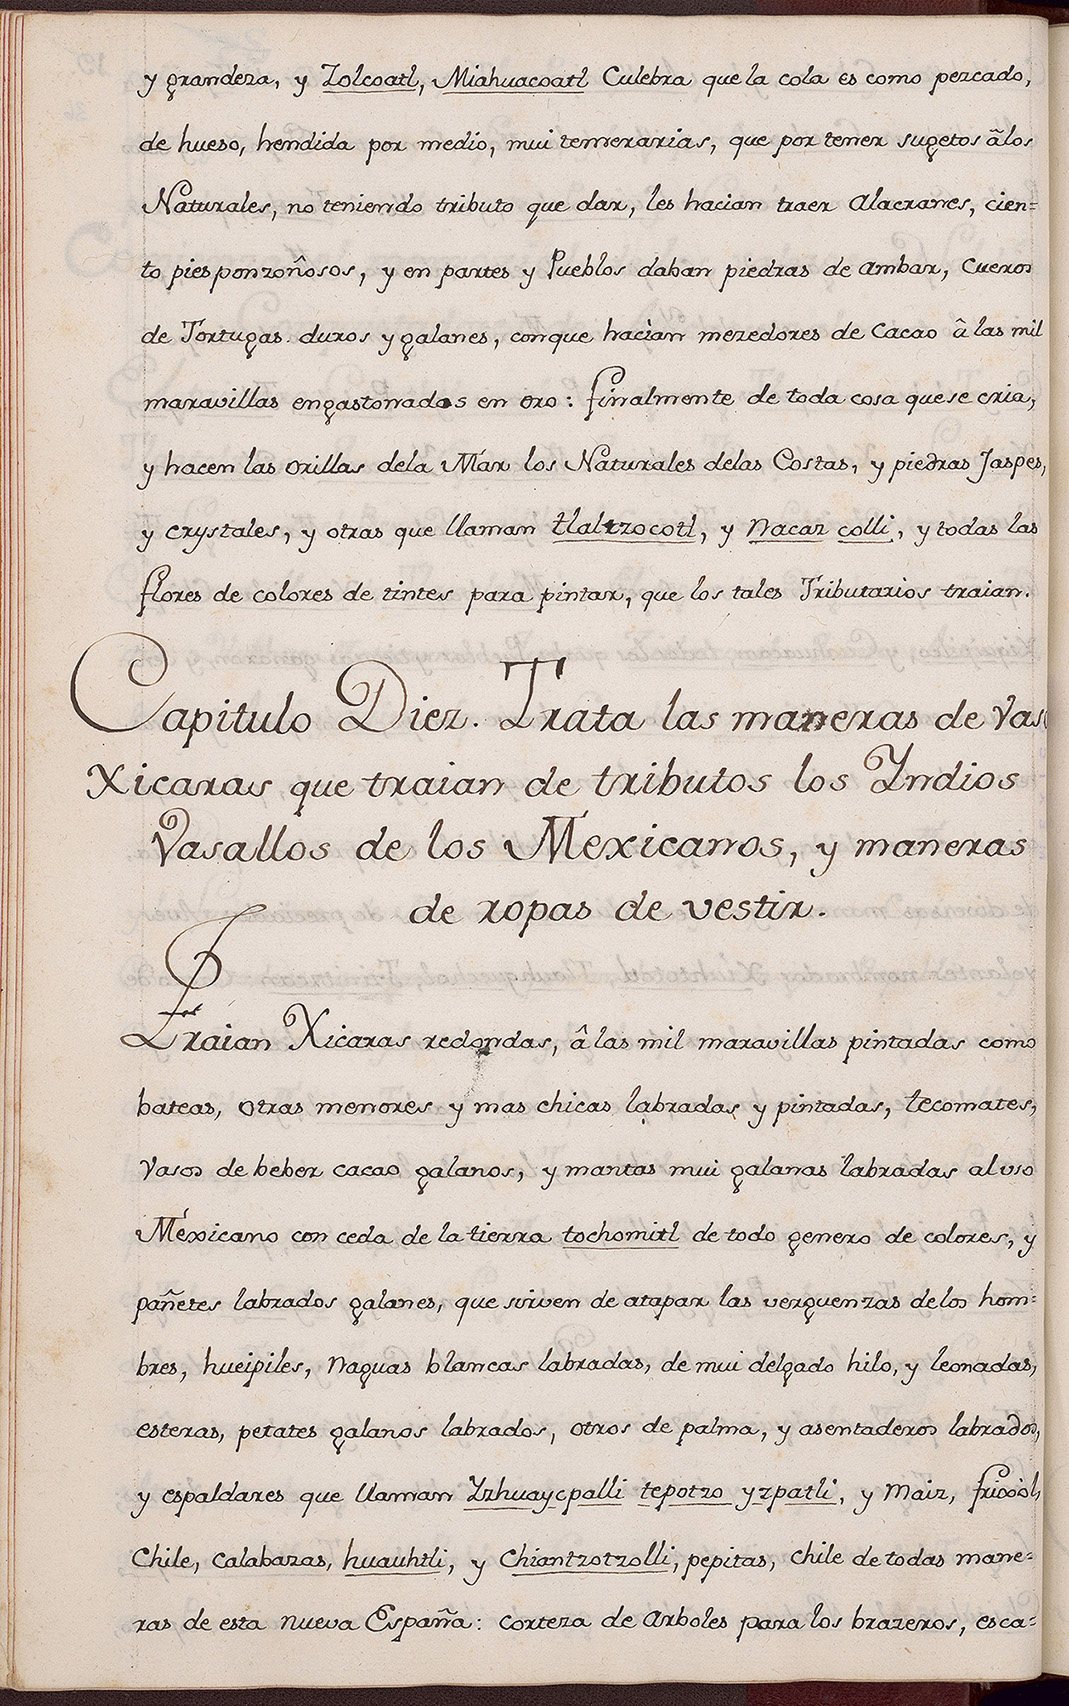 y grandeza, y Zolcoatl, Miahuacoatl Culebra que la cola es como pezcado,
de hueso, hendida por medio, mui temerarias, que por tener sugetos âlos
Naturales, no teniendo tributo que dar, les hacian traer Alacranes, cien=
to pies ponzoñosos, y en partes y Pueblos daban piedras de ambar, Cueros
de Tortugas duros y galanes, conque hacian mezedores de Cacao â las mil
maravillas engastonados en oro: finalmente de toda cosa que se cria,
y hacen las orillas dela Mar los Naturales delas Costas, y piedras Jaspes,
y crystales, y otras que llaman tlaltzocotl, y Nacaz colli, y todas las
flores de colores de tintes para pintar, que los tales Tributarios traian.
Capitulo Diez. Trata las maneras de Vas
Xicaras que traian de tributos los Yndios
Vasallos de los Mexicanos, y maneras
de ropas de vestir.
Traian Xicaras redondas, â las mil maravillas pintadas como
bateas, otras menores y mas chicas labradas y pintadas, tecomates,
Vasos de beber cacao galanos, y mantas mui galanas labradas al uso
Mexicano con ceda de la tierra tochomitl de todo genero de colores, y
pañetes labrados galanes, que sirven de atapar las verguenzas delos hom=
bres, hueipiles, Naguas blancas labradas, de mui delgado hilo, y leonadas,
esteras, petates galanos labrados, otros de palma, y asentaderos labrados,
y espaldares que llaman Yzhuaycpalli tepotzo yzpatli, y Maiz, frixol,
Chile, Calabazas, huauhtli, y Chiantzotzolli, pepitas, chile de todas mane=
ras de esta Nueva España: corteza de Arboles para los brazeros, esca=